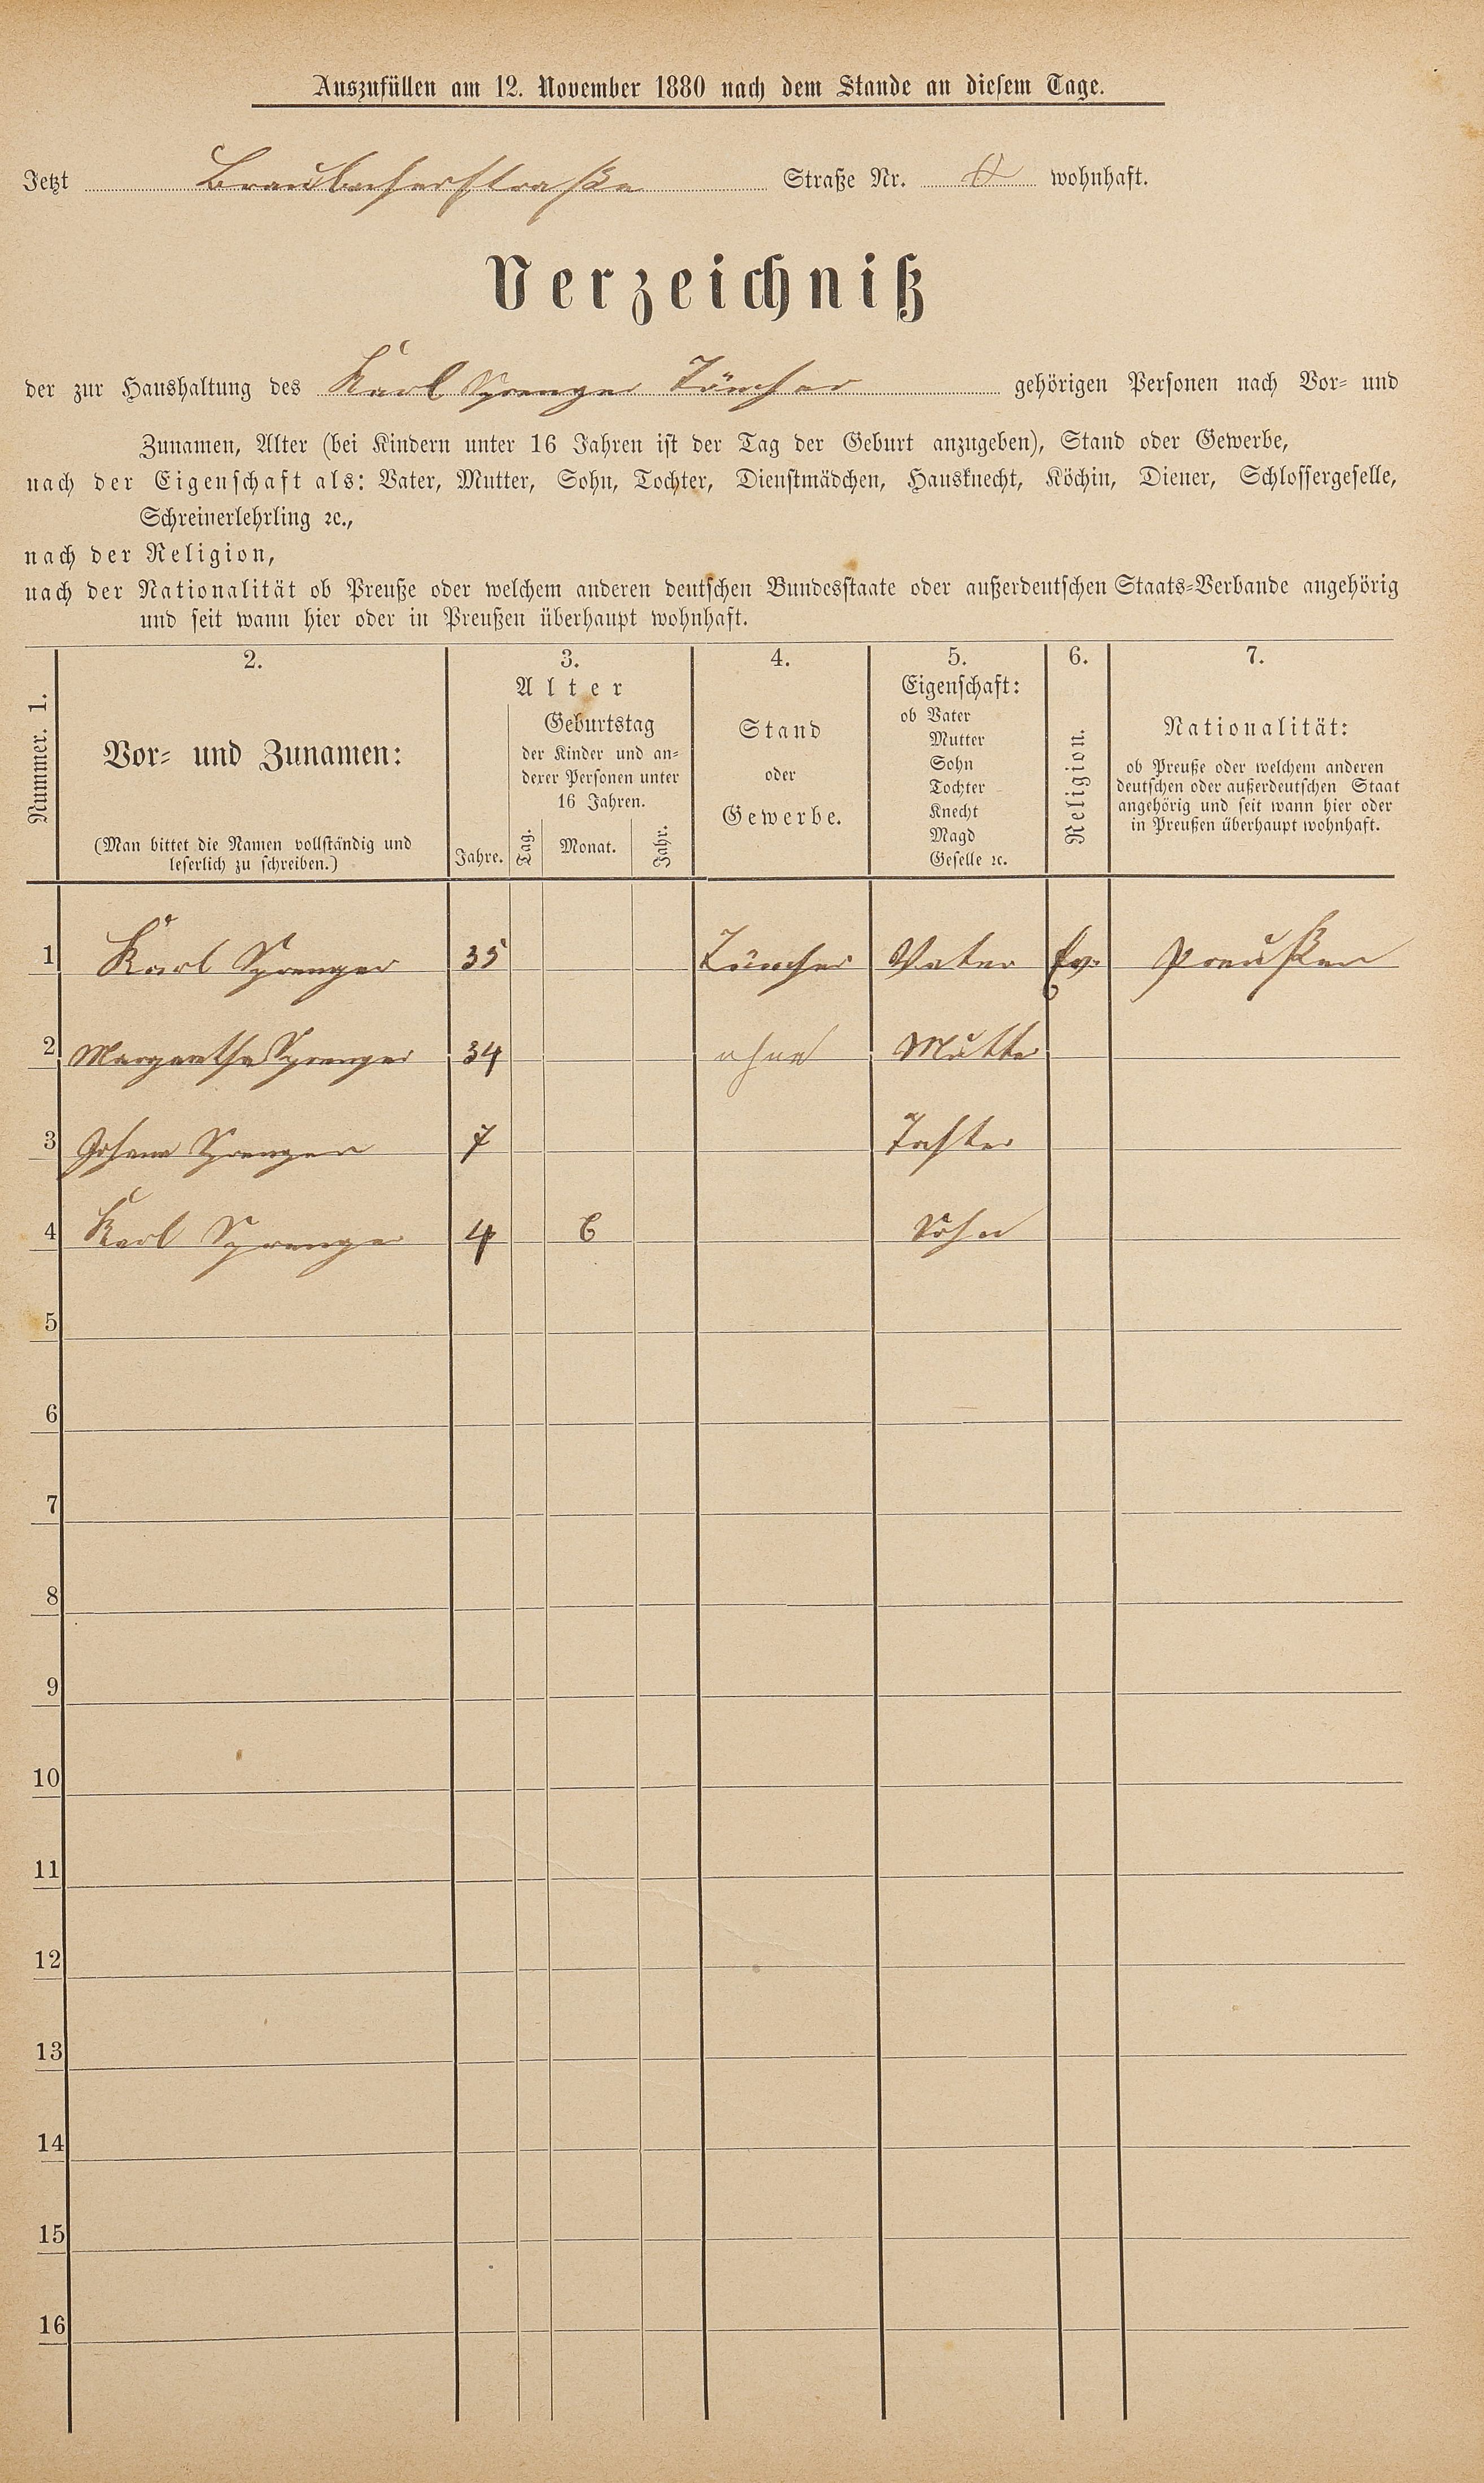 Auszufüllen am 12. November 1880 nach dem Stande an diesem Tage.
Jetzt Braubacherstraße Straße Nr. wohnhaft.
Verzeichniß
der zur Haushaltung des Karl Sprenger Tüncher gehörigen Personen nach Vor- und
Zunamen, Alter (bei Kindern unter 16 Jahren ist der Tag der Geburt anzugeben), Stand oder Gewerbe,
nach der Eigenschaft als: Vater, Mutter, Sohn, Tochter, Dienstmädchen, Hausknecht, Köchin, Diener, Schlossergeselle,
Schreinerlehrling ꝛc.,
nach der Religion,
nach der Nationalität ob Preuße oder welchem anderen deutschen Bundesstaate oder außerdeutschen Staats-Verbande angehörig
und seit wann hier oder in Preußen überhaupt wohnhaft.
Nummer. 1.
2.
Vor- und Zunamen:
(Man bittet die Namen vollständig und
leserlich zu schreiben.)
3.
Alter
Jahre.
Geburtstag
der Kinder und an-
derer Personen unter
16 Jahren.
Tag. Monat. Jahr.
4.
Stand
oder
Gewerbe.
5.
Eigenschaft:
ob Vater
Mutter
Sohn
Tochter
Knecht
Magd
Geselle ꝛc.
6.
Religion.
7.
Nationalität:
ob Preuße oder welchem anderen
deutschen oder außerdeutschen Staat
angehörig und seit wann hier oder
in Preußen überhaupt wohnhaft.
1 Karl Sprenger 35 Tüncher Vater Ev. Preußen
2 Margaretha Sprenger 34 ohne Mutter
3 Johana Sprenger 7 Tochter
4 Karl Sprenger 4 6 Sohn
5
6
7
8
9
10
11
12
13
14
15
16